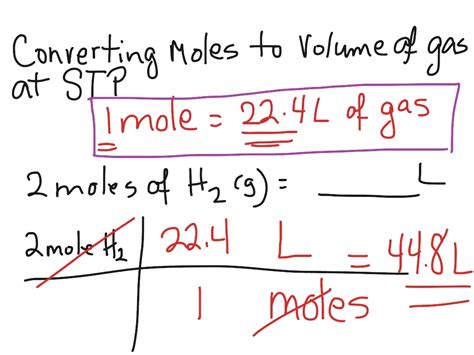 Converting Moles to Volume of gas
at STP
1 mole = 22.4 L of gas
2 moles of H₂ (g) = ______ L
2 mole H₂ | 22.4 L = 44.8 L
1 moles